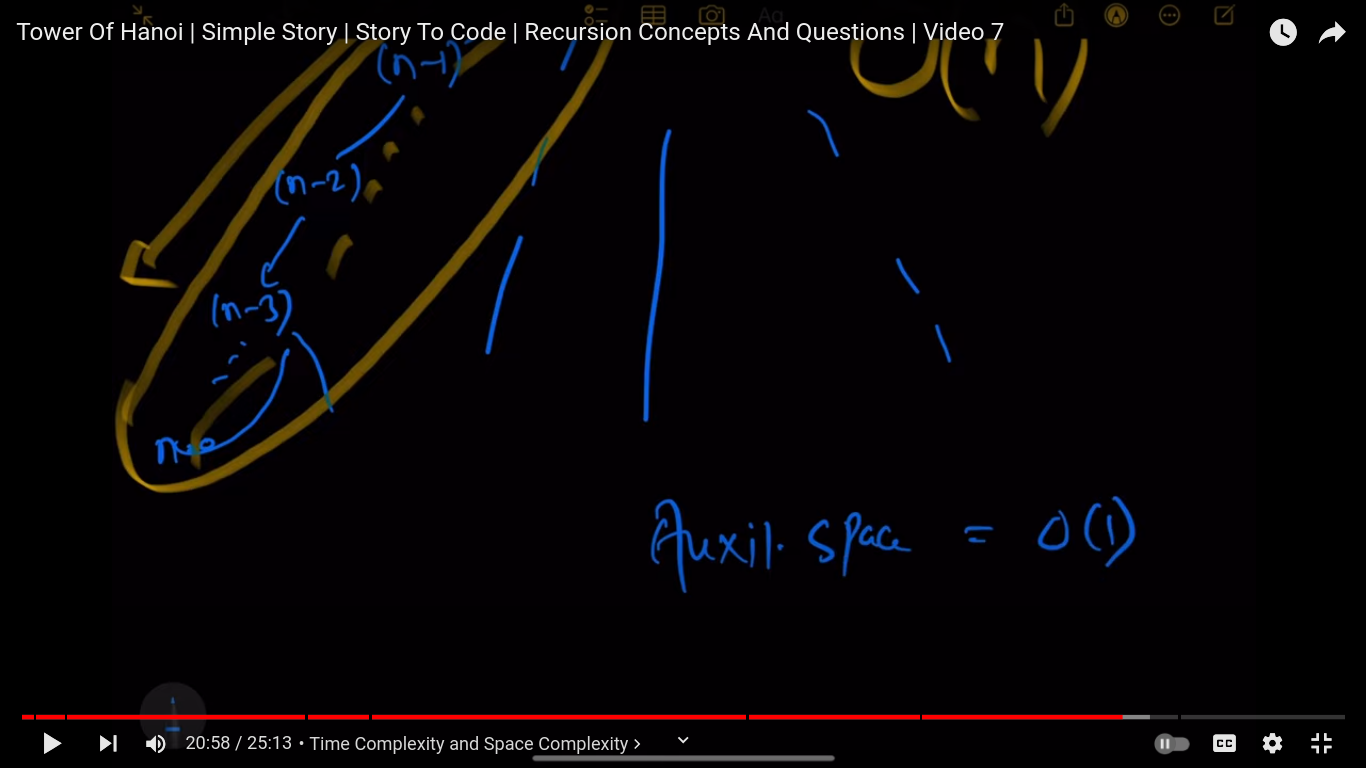 Tower Of Hanoi | Simple Story | Story To Code | Recursion Concepts And Questions | Video 7
Aa
(n-1)
(n-2)
(n-3)
Auxil. Space = O(1)
20:58 / 25:13 • Time Complexity and Space Complexity >
CC